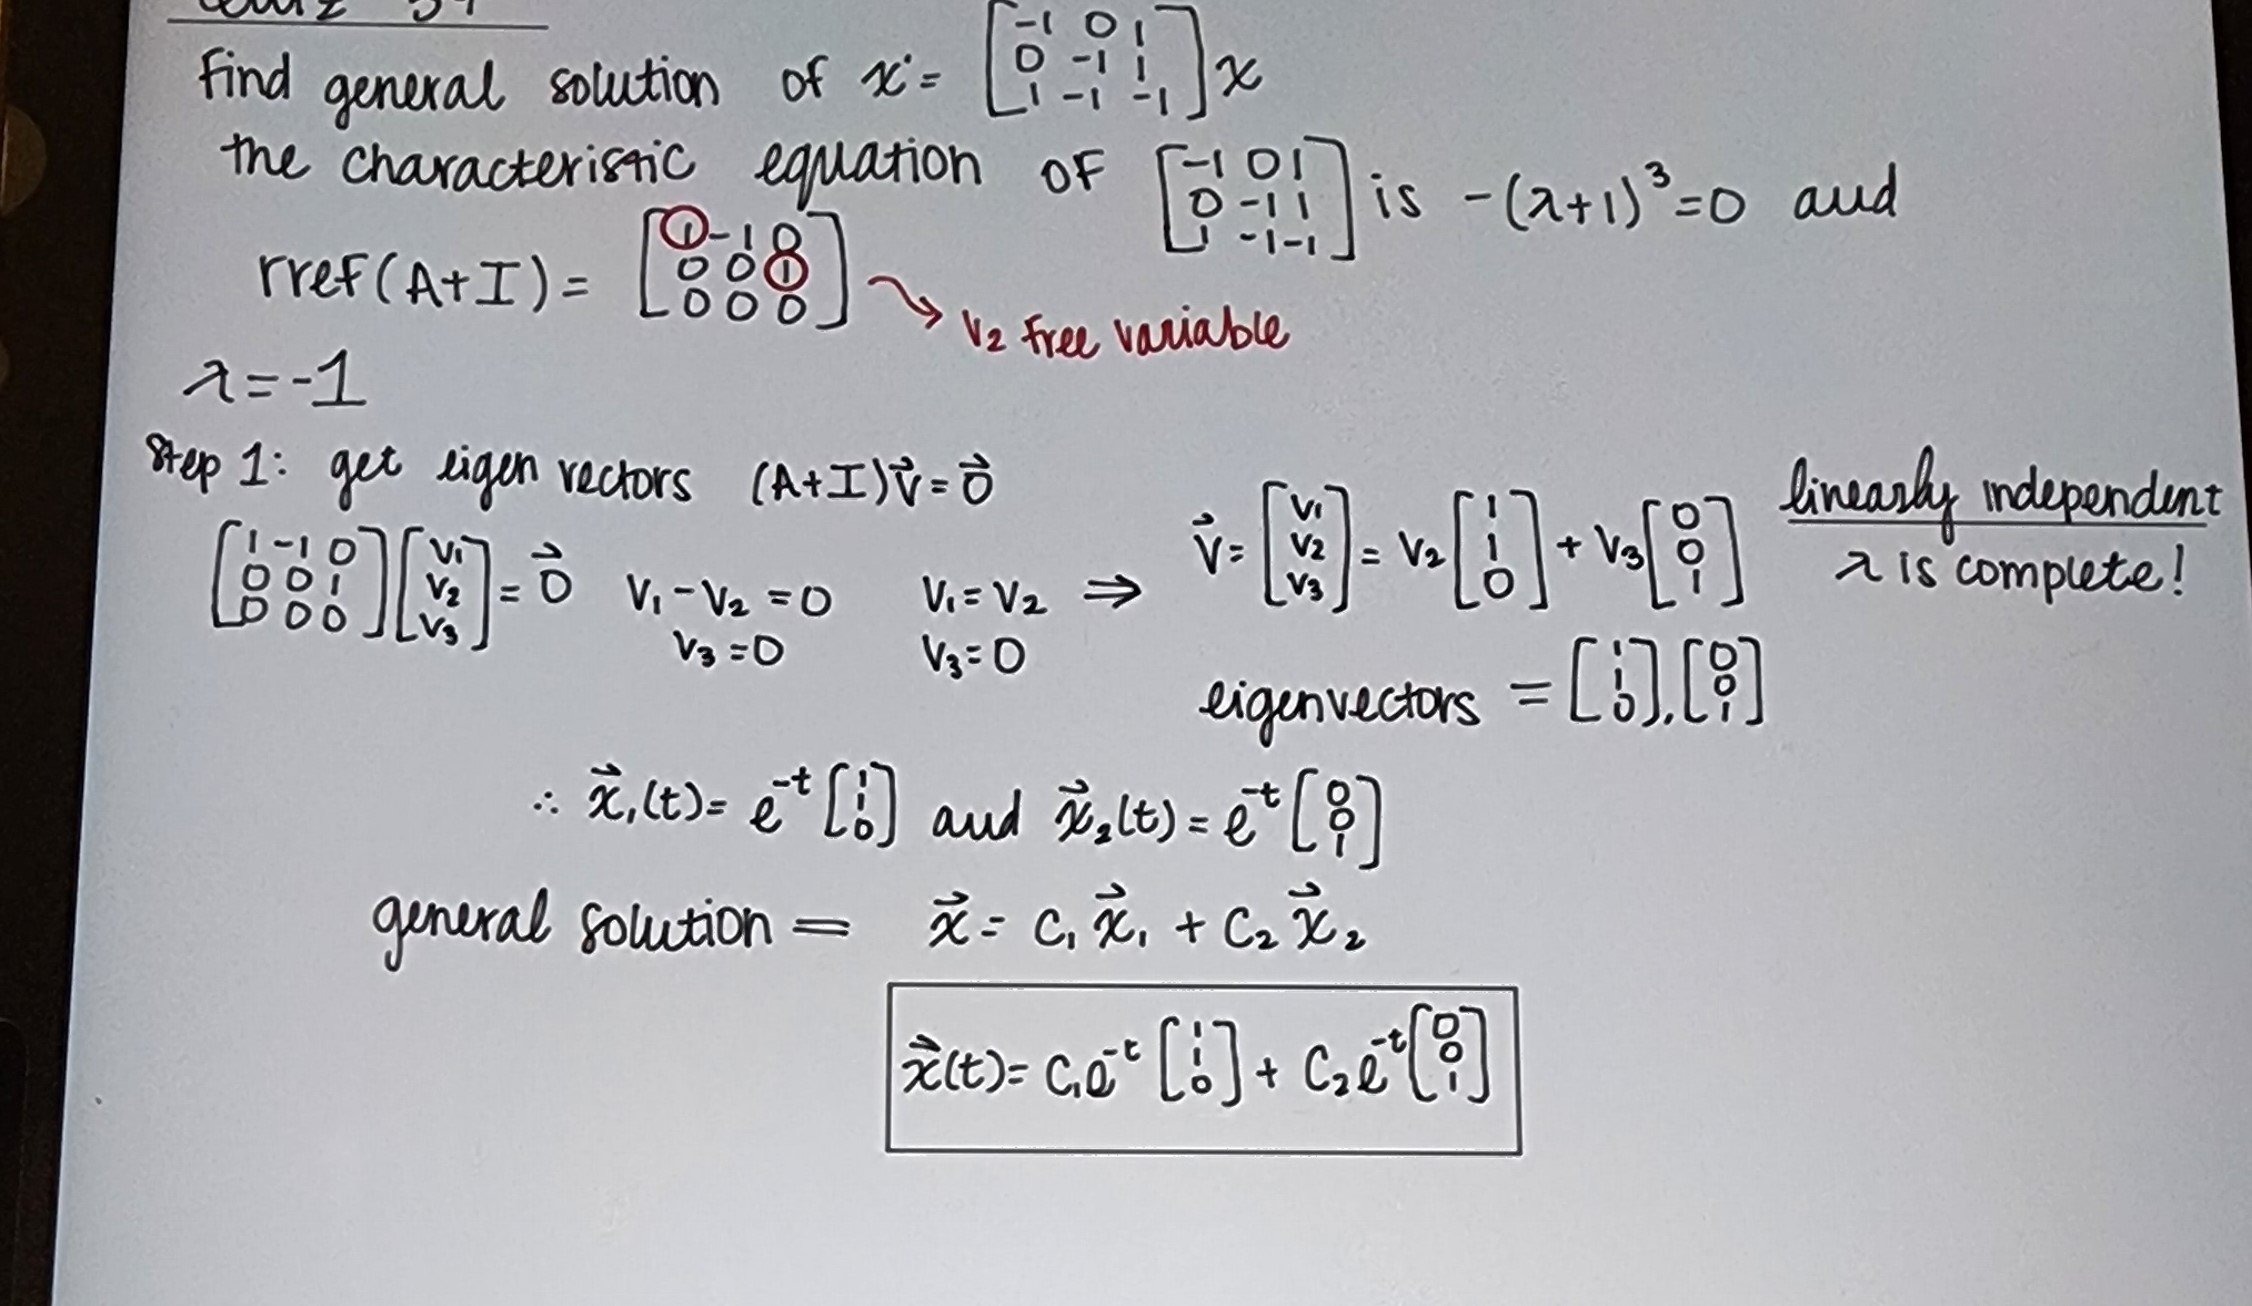 Find general solution of x' = [-1 0 1; 0 -1 1; 1 -1 -1] x
the characteristic equation of [-1 0 1; 0 -1 1; 1 -1 -1] is -(λ+1)³=0 and
rref(A+I) = [1 -1 0; 0 0 1; 0 0 0] → v₂ free variable
λ=-1
Step 1: get eigen vectors (A+I)v⃗=0⃗
[1 -1 0; 0 0 1; 0 0 0][v₁; v₂; v₃] = 0⃗ v₁-v₂=0 v₁=v₂ ⇒ v⃗=[v₁; v₂; v₃] = v₂[1; 1; 0] + v₃[0; 0; 1] linearly independent
v₃=0 v₃=0 λ is complete!
eigenvectors = [1; 1; 0], [0; 0; 1]
∴ x⃗₁(t)= e^-t [1; 1; 0] and x⃗₂(t)= e^-t [0; 0; 1]
general solution = x⃗= c₁x⃗₁ + c₂x⃗₂
x⃗(t)= c₁e^-t [1; 1; 0] + c₂e^-t [0; 0; 1]